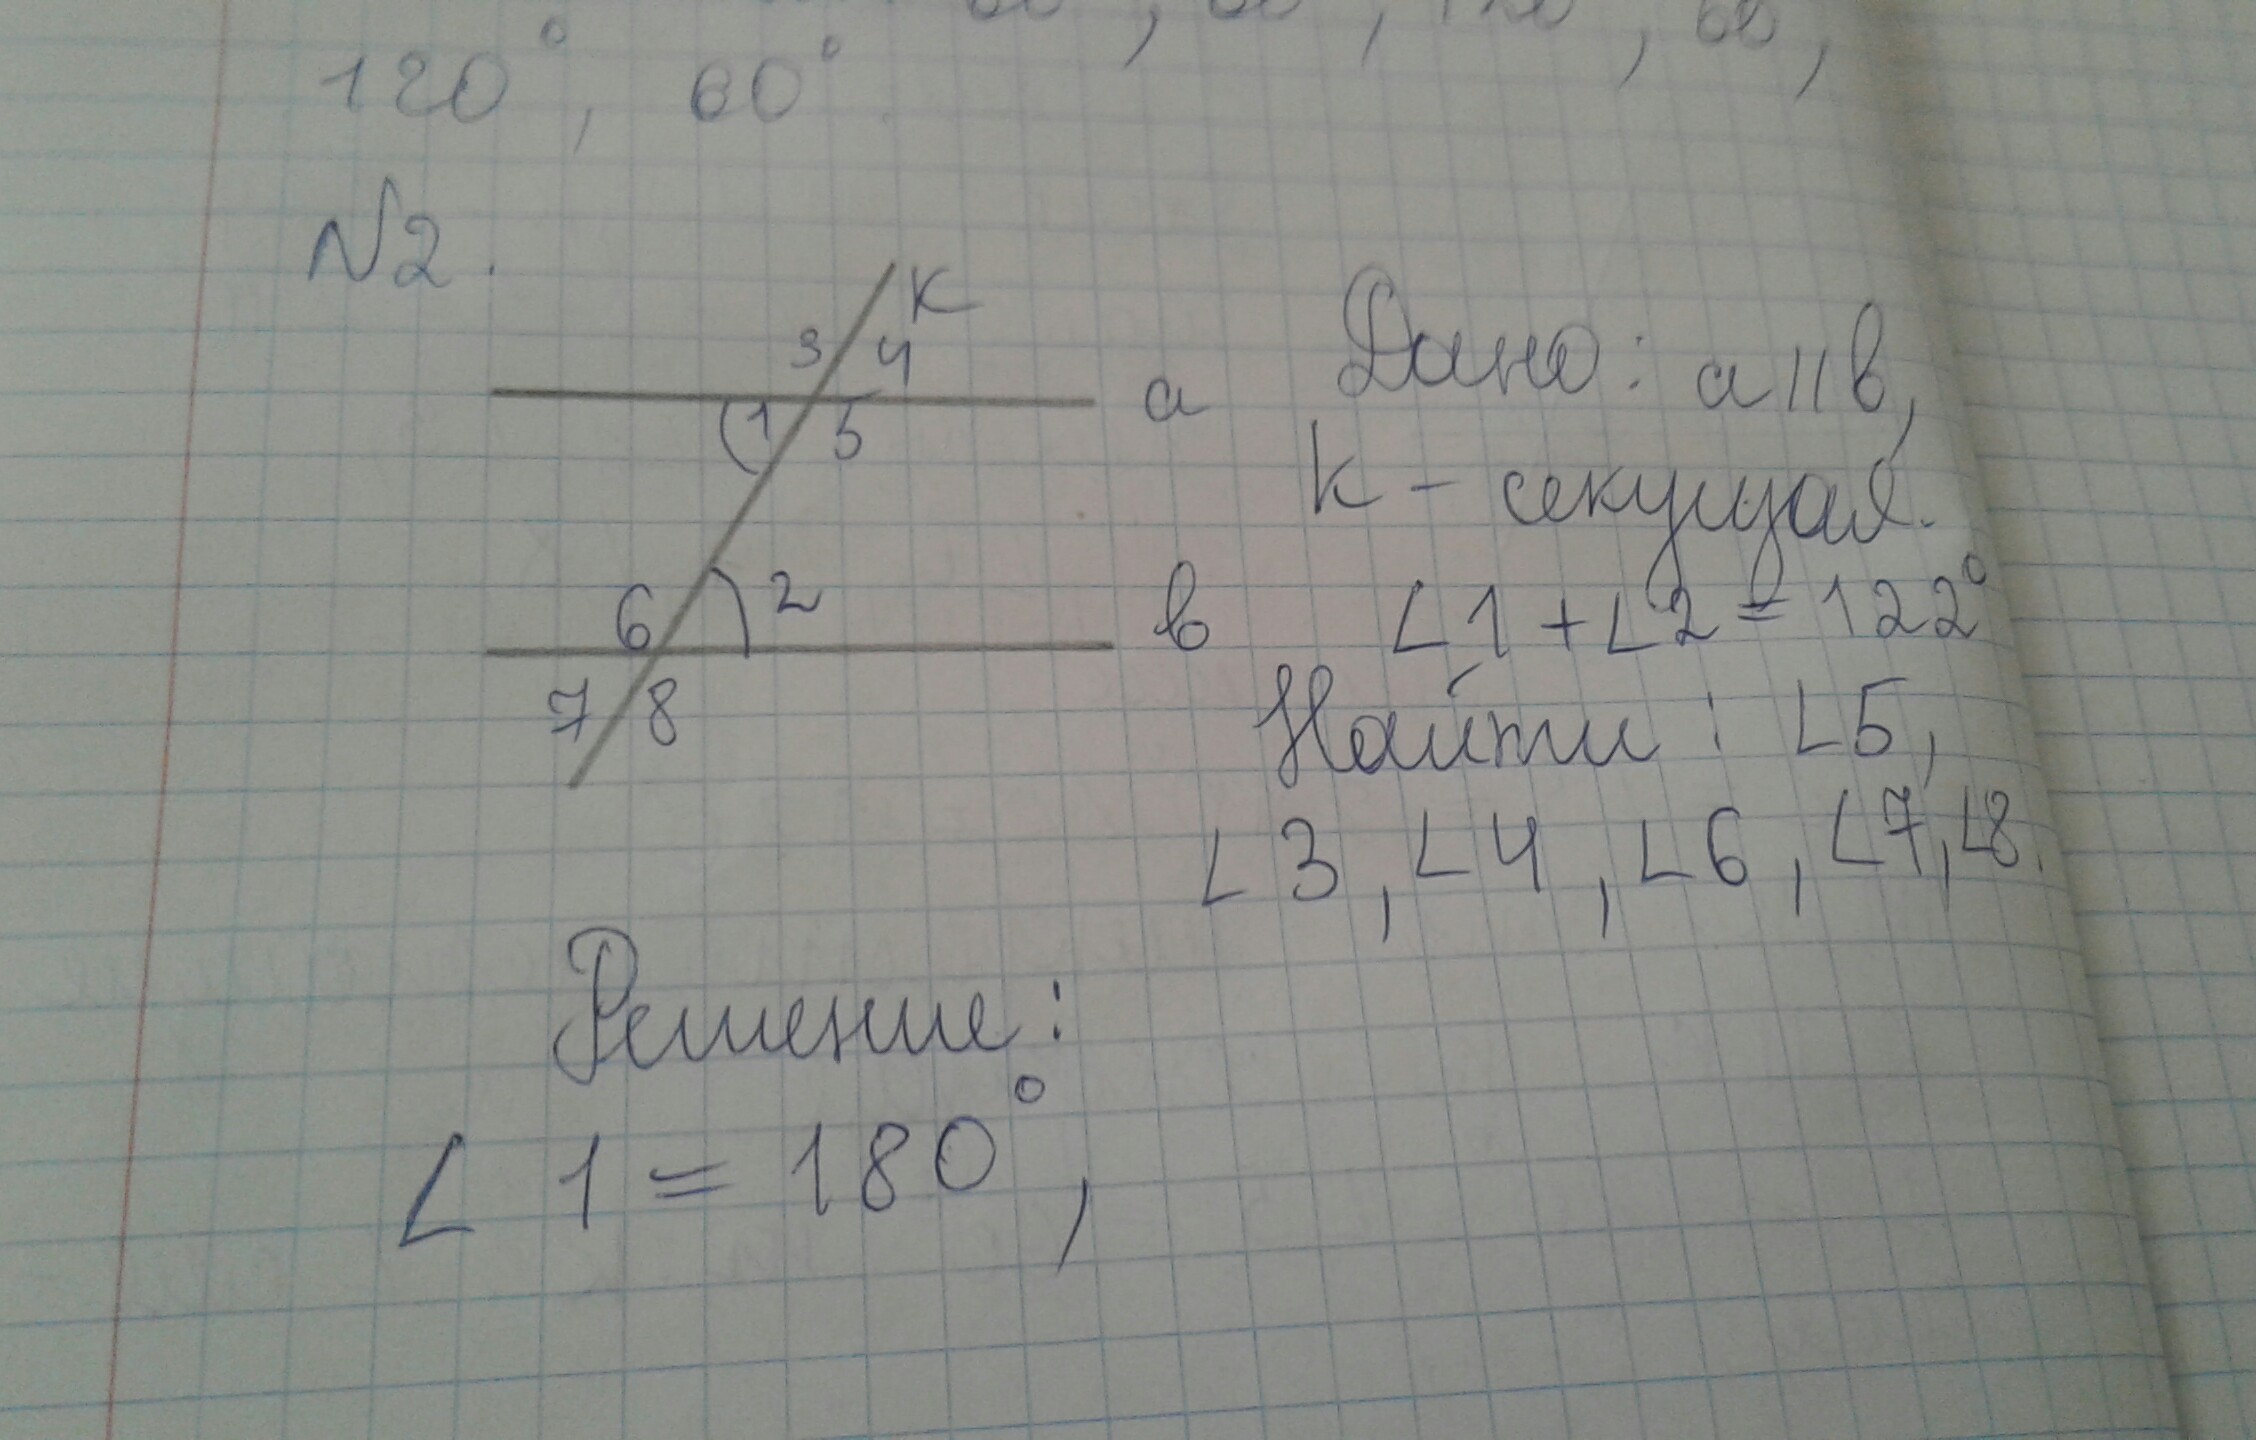 120°, 60°
N2.
K
3 4
a
1 5
6 2
в
7 8
Дано: a || в,
K - секущая.
∠1 + ∠2 = 122°
Найти: ∠5,
∠3, ∠4, ∠6, ∠7, ∠8.
Решение:
∠ 1 = 180°,